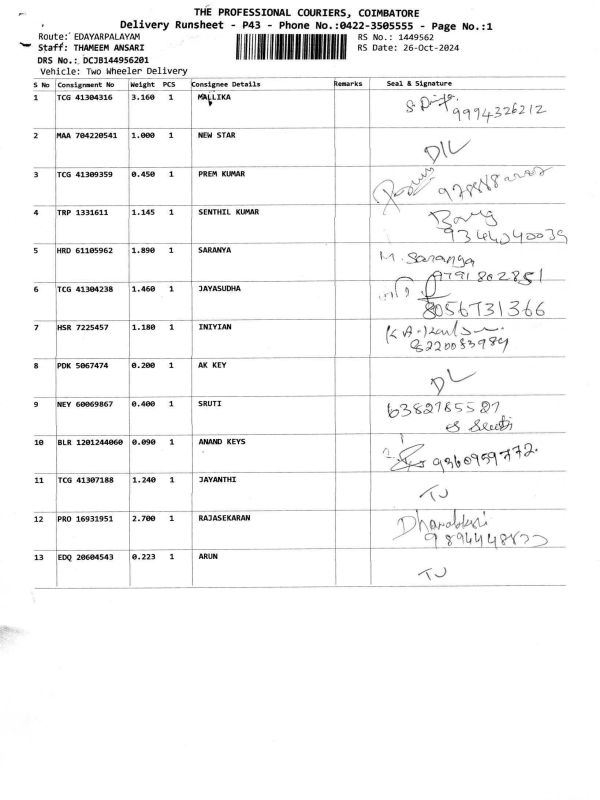 THE PROFESSIONAL COURIERS, COIMBATORE
Delivery Runsheet - P43 - Phone No.:0422-3505555 - Page No.:1
Route: EDAYARPALAYAM RS No.: 1449562
Staff: THAMEEM ANSARI RS Date: 26-Oct-2024
DRS No.: DCJB144956201
Vehicle: Two Wheeler Delivery
S No Consignment No Weight PCS Consignee Details Remarks Seal & Signature
1 TCG 41304316 3.160 1 MALLIKA
9994326212
2 MAA 704220541 1.000 1 NEW STAR
D/L
3 TCG 41309359 0.450 1 PREM KUMAR
4 TRP 1331611 1.145 1 SENTHIL KUMAR
9344040039
5 HRD 61105962 1.890 1 SARANYA M. Saranya
9791802851
6 TCG 41304238 1.460 1 JAYASUDHA
8056731366
7 HSR 7225457 1.180 1 INIYIAN
8220083989
8 PDK 5067474 0.200 1 AK KEY
DL
9 NEY 60069867 0.400 1 SRUTI 6382785527
Sruti
10 BLR 1201244060 0.090 1 ANAND KEYS
9360959772.
11 TCG 41307188 1.240 1 JAYANTHI
TJ
12 PRO 16931951 2.700 1 RAJASEKARAN
13 EDQ 20604543 0.223 1 ARUN
TJ